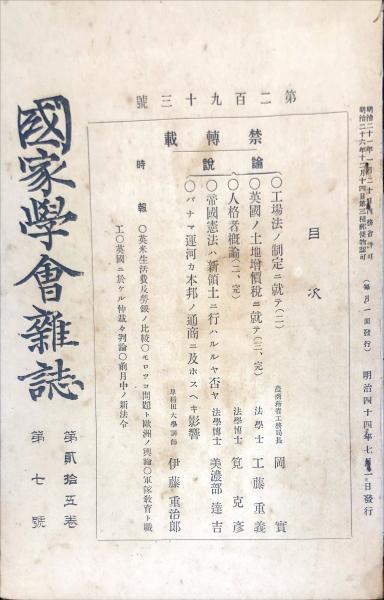 第二百九十三號
明治二十六年十二月十四日第三種郵便物認可
（每月一回發行）
明治四十四年七月一日發行
目次
禁轉載
論說
○工場法ノ制定ニ就テ（二） 農商務省工務局長 岡實
○英國ノ土地增價稅ニ就テ（三、完） 法學士 工藤重義
○人格者概論（二、完） 法學博士 筧克彥
○帝國憲法ハ新領土ニ行ハルルヤ否ヤ 法學博士 美濃部達吉
○パナマ運河カ本邦ノ通商ニ及ホスヘキ影響 早稻田大學講師 伊藤重治郎
時報
○英米生活費及勞銀ノ比較○モロツコ問題ト歐洲ノ輿論○軍隊教育ト職
工○英國ニ於ケル仲裁々判論○前月中ノ新法令
國家學會雜誌
第貳拾五卷
第七號